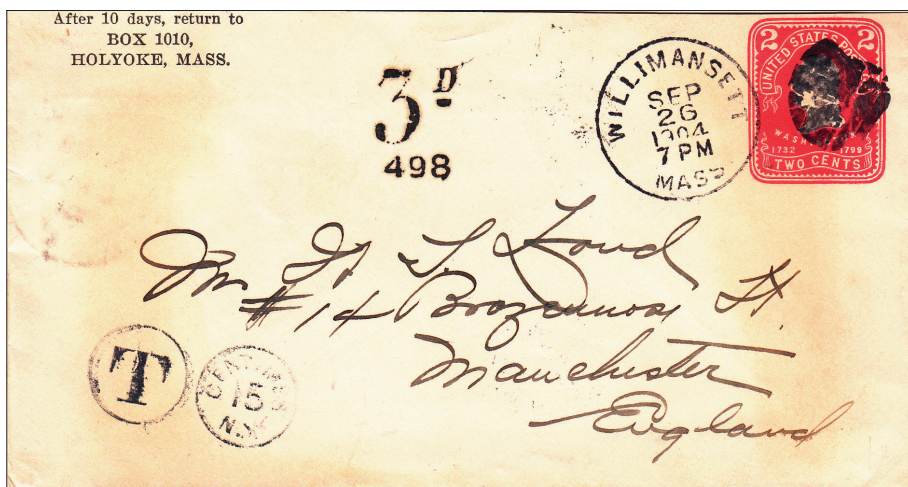 After 10 days, return to
BOX 1010,
HOLYOKE, MASS.
3D
498
WILLIMANSETT
SEP
26
1904
7 PM
MASS
2 2
UNITED STATES POS
WASH
1732 1799
TWO CENTS
Mr
#14 St.
Manchester
England
T
CENTIMES
15
N.Y.